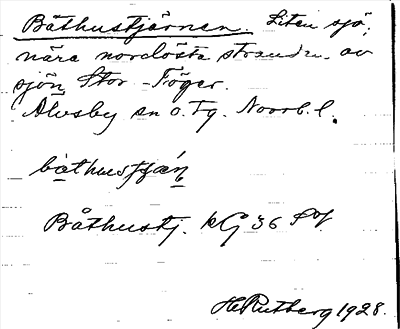 Båthustjärnen. Liten sjö,
nära nordöstra stranden av
sjön Stor-Töger.
Älvsby sn o. Tg. Norrb. l.
båthustjän
Båthustj. kG 36 SV
H Rutberg 1928.